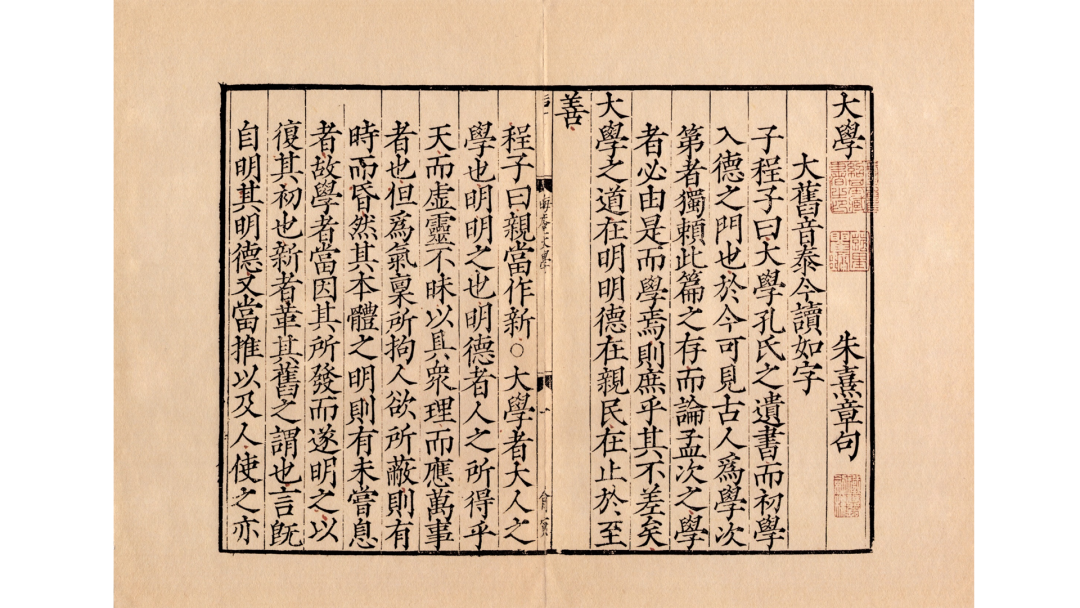 大學 朱熹章句
大舊音泰今讀如字
子程子曰大學孔氏之遺書而初學
入德之門也於今可見古人爲學次
第者獨賴此篇之存而論孟次之學
者必由是而學焉則庶乎其不差矣
大學之道在明明德在親民在止於至
善
程子曰親當作新○大學者大人之
學也明明之也明德者人之所得乎
天而虛靈不昧以具衆理而應萬事
者也但爲氣稟所拘人欲所蔽則有
時而昏然其本體之明則有未嘗息
者故學者當因其所發而遂明之以
復其初也新者革其舊之謂也言旣
自明其明德又當推以及人使之亦